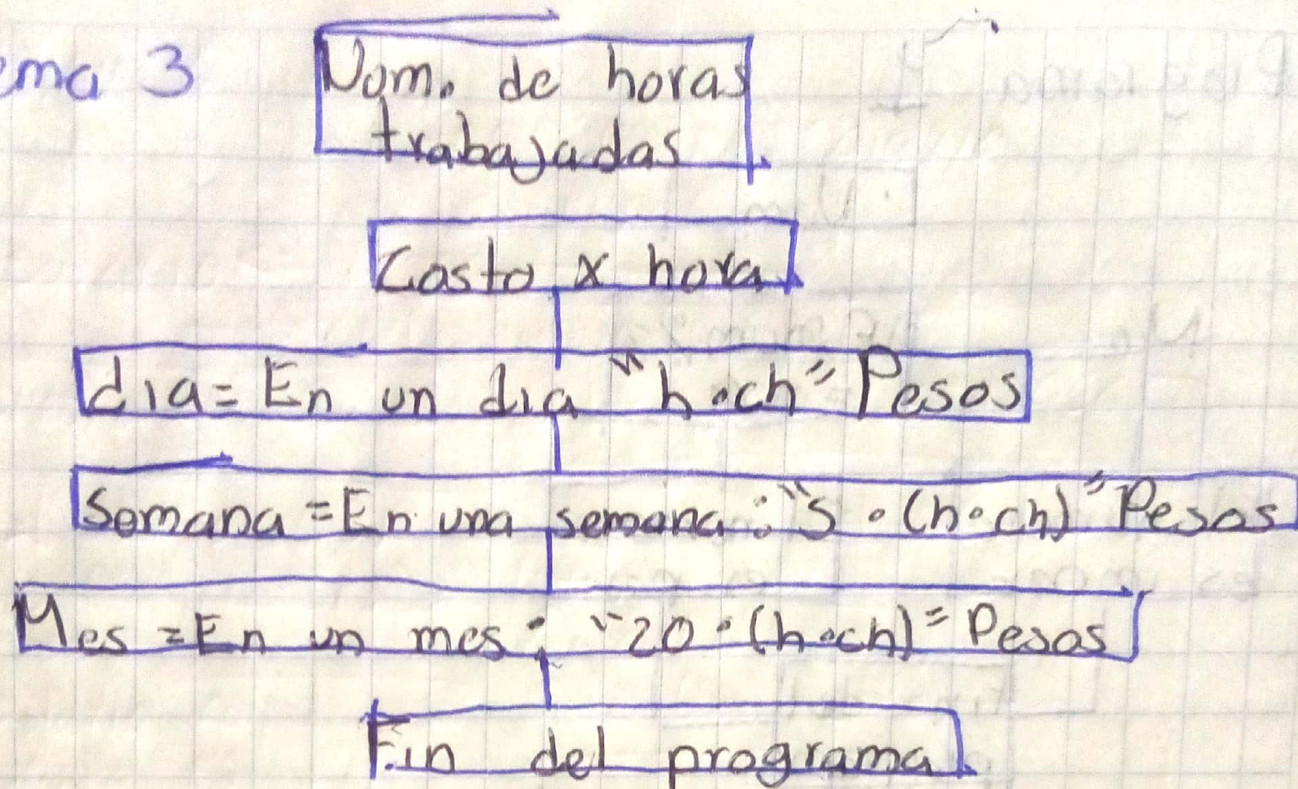 ema 3
Num. de horas
trabajadas
Costo x hora
dia= En un dia "h·ch" Pesos
Semana = En una semana: "5 · (h·ch)" Pesos
Mes = En un mes: "20 · (h·ch)" Pesos
Fin del programa